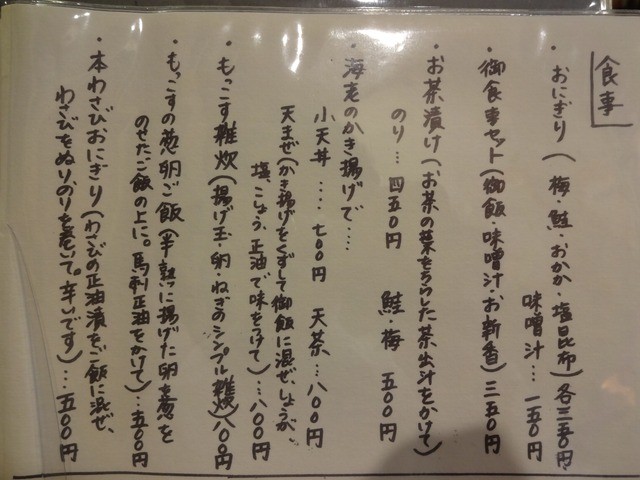 食事
・おにぎり(梅・鮭・おかか・塩昆布)各三五〇円
味噌汁…一五〇円
・御食事セット(御飯・味噌汁・お新香)三五〇円
・お茶漬け(お茶の葉をちらした茶出汁をかけて)
のり…四五〇円 鮭・梅 五〇〇円
・海老のかき揚げで……
小天丼……七〇〇円 天茶…八〇〇円
天まぜ(かき揚げをくずして御飯に混ぜ、しょうが、
塩、こしょう、正油で味をつけて)…八〇〇円
・もっこす雑炊(揚げ玉・卵・ねぎのシンプル雑炊)八〇〇円
・もっこすの葱卵ご飯(半熟に揚げた卵を葱を
のせたご飯の上に。馬刺正油をかけて)…五〇〇円
・本わさびおにぎり(わさびの正油漬をご飯に混ぜ、
わさびをぬりのりを巻いて。辛いです)…五〇〇円